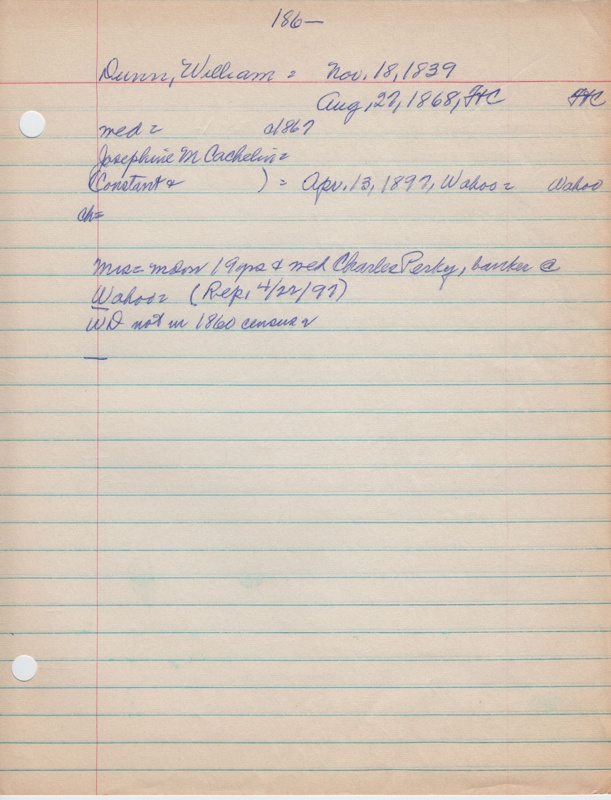 186—
Dunn, William = Nov. 18, 1839
Aug, 27, 1868, FtC FtC
med = c1867
Josephine M Cachelin=
(Constant & ) = Apr. 13, 1897, Wahoo = Wahoo
ch=
Mrs = mdow 19 yrs & med Charles Perky, banker @
Wahoo= (Rep, 4/22/97)
WD not in 1860 census
—